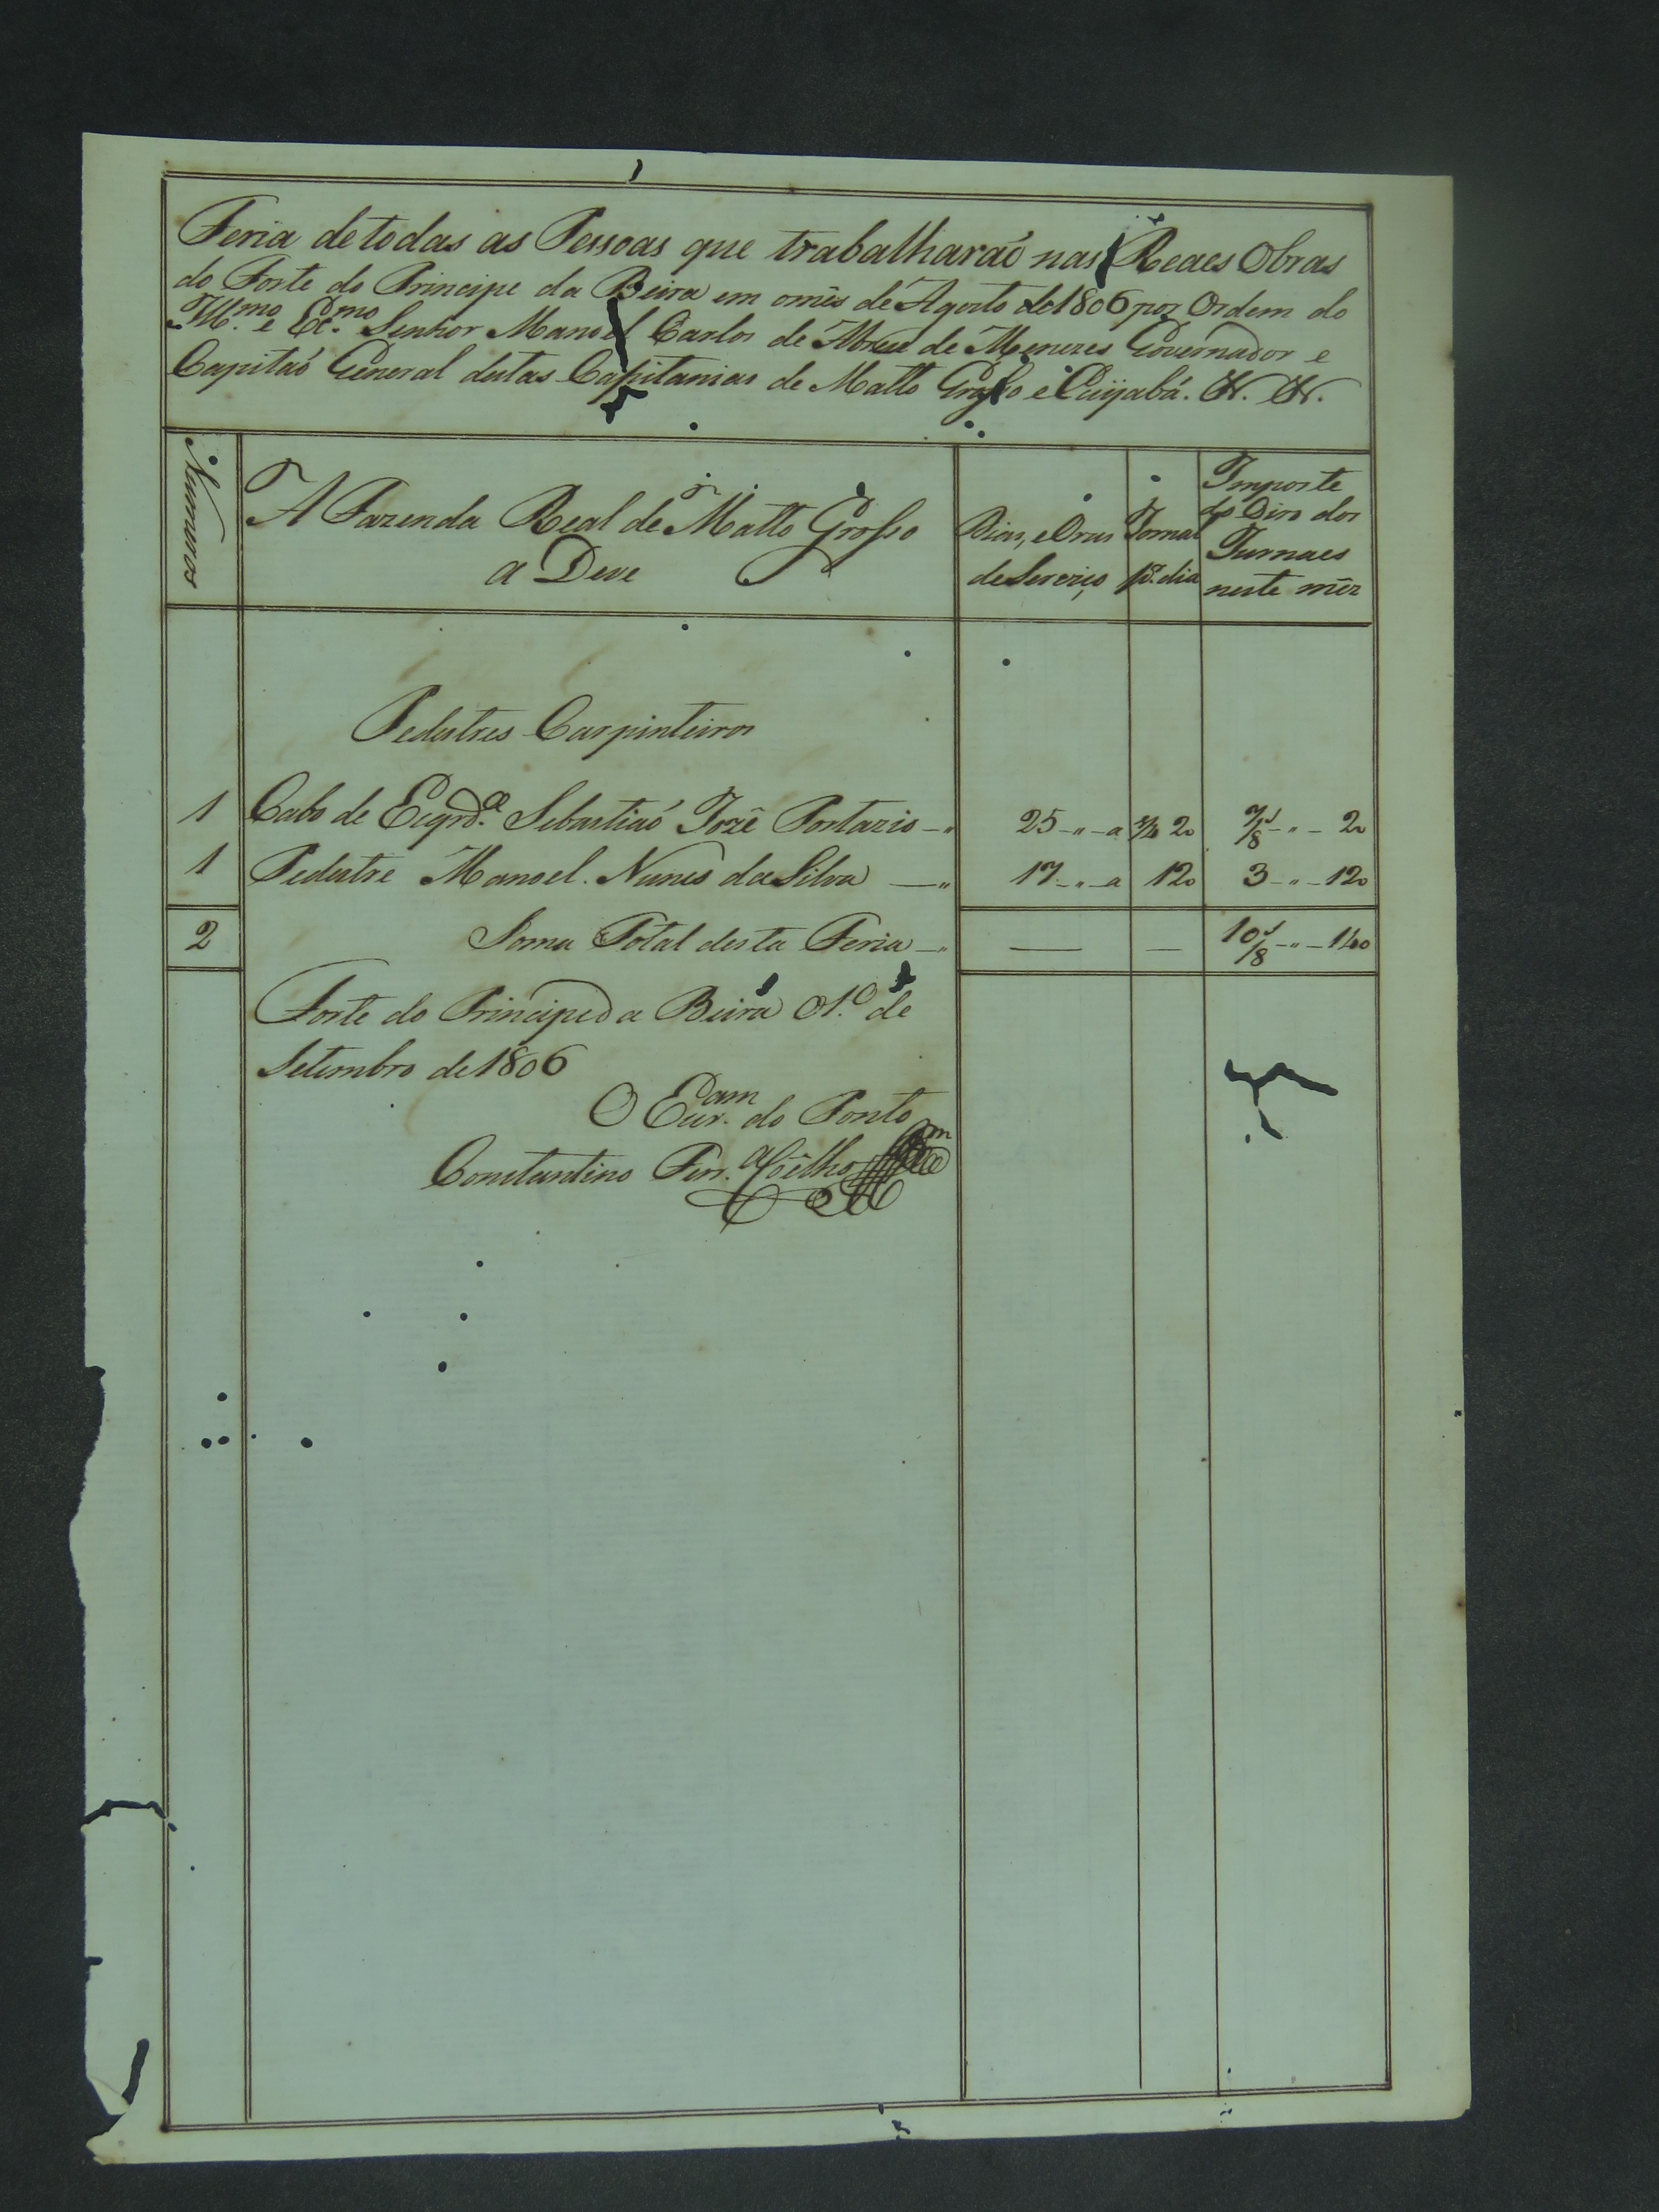 Feria de todas as Pessoas que trabalharaõ nas Reaes Obras
do Forte do Principe da Beira em o mês de Agosto de 1806 por Ordem do
Ill.mo e Ex.mo Senhor Manoel Carlos de Abreu de Menezes Governador e
Capitaõ General destas Capitanias de Matto Grosso e Cuyabá. &. &.
Numeros
A Fazenda Real de Matto Grosso
a Deve
Dias, e Oras
de Serviço
Jornal
p.r dia
Importe
do Diro dos
Jurnaes
neste mêz
Pedestres Carpinteiros
1 Cabo de Esqrd.a Sebastiaõ Jozé Portazio 25 - " - a 20 7/8 - " - 20
1 Pedestre Manoel Nunes da Silva - " 17 - " - a 120 3 - " - 120
2 Soma Total desta Feria - " — — 10/8 - " - 140
Forte do Principe da Beira o 1.o de
Setembro de 1806
O Escr.am do Ponto
Constantino Ferr.a Coêlho